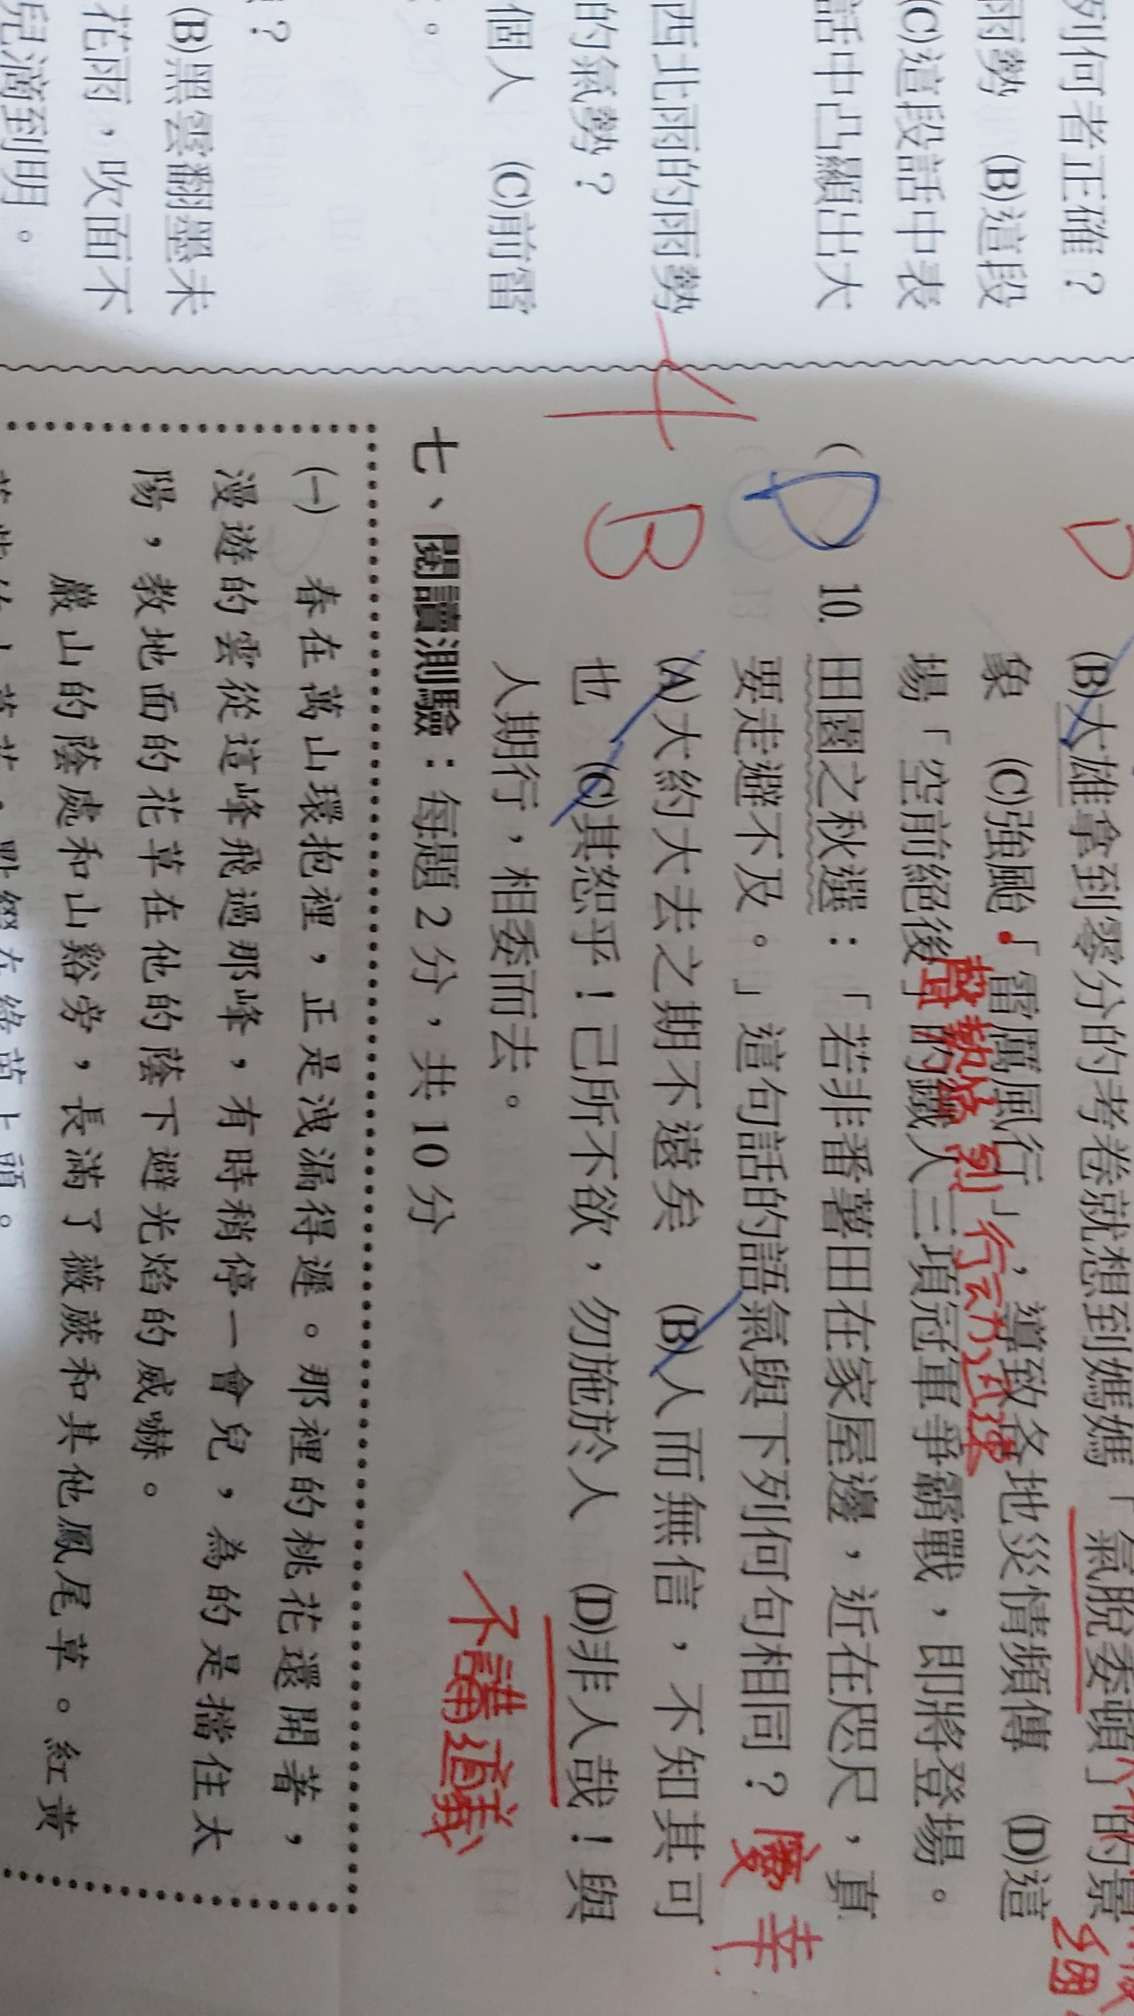 列何者正確？
雨勢 (B)這段
(C)這段話中表
話中凸顯出大
西北雨的雨勢
的氣勢？
個人 (C)前雷
？
(B)黑雲翻墨未
花雨，吹面不
兒滴到明。
D
(B)大雄拿到零分的考卷就想到媽媽「氣脫委頓」的景
象 (C)強颱「雷厲風行」，導致各地災情頻傳 (D)這
聲勢猛烈 行動迅速
場「空前絕後」的鐵人三項冠軍爭霸戰，即將登場。
( D ) 10. 田園之秋選：「若非番薯田在家屋邊，近在咫尺，真
要走避不及。」這句話的語氣與下列何句相同？ 慶幸
(A)大約大去之期不遠矣 (B)人而無信，不知其可
也 (C)其恕乎！己所不欲，勿施於人 (D)非人哉！與
人期行，相委而去。
不講道義
4
B
七、閱讀測驗：每題 2 分，共 10 分
(一) 春在萬山環抱裡，正是洩漏得遲。那裡的桃花還開著，
漫遊的雲從這峰飛過那峰，有時稍停一會兒，為的是擋住太
陽，教地面的花草在他的蔭下避光焰的威嚇。
巖山的蔭處和山谿旁，長滿了薇蕨和其他鳳尾草。紅黃